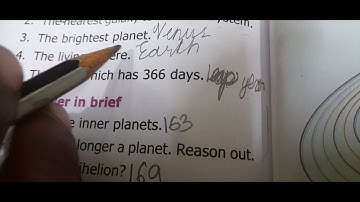 2. The nearest galaxy to ystem.
3. The brightest planet. Venus
4. The livin ere. Earth
hich has 366 days. leap year
er in brief
e inner planets. 163
longer a planet. Reason out.
ihelion? 169